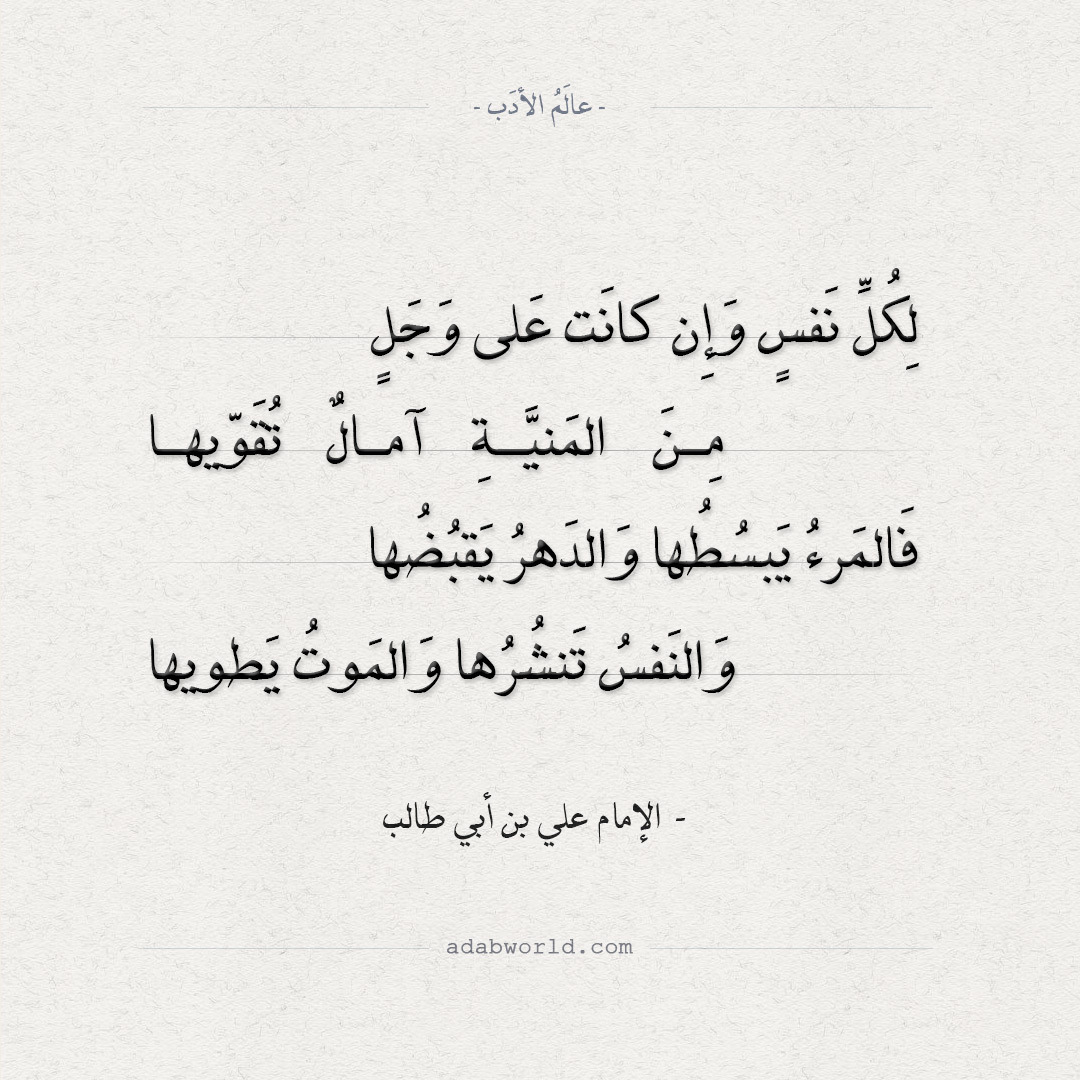 - عالَمُ الأدَب -
لِكُلِّ نَفسٍ وَإِن كانَت عَلى وَجَلٍ
مِـنَ المَنيَّـةِ آمـالٌ تُقَوّيهـا
فَالمَرءُ يَبسُطُها وَالدَهرُ يَقبُضُها
وَالنَفسُ تَنشُرُها وَالمَوتُ يَطويها
- الإمام علي بن أبي طالب
adabworld.com